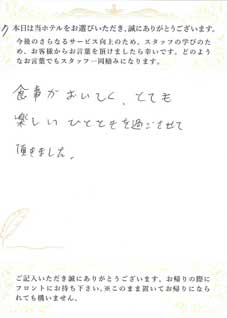 本日は当ホテルをお選びいただき、誠にありがとうございます。
今後のさらなるサービス向上のため、スタッフの学びのため、お客様からお言葉を頂けましたら幸いです。どのようなお言葉でもスタッフ一同励みになります。
食事がおいしく、とても
楽しいひとときを過ごさせて
頂きました。
ご記入いただき誠にありがとうございます。お帰りの際に
フロントにお持ち下さい。※このまま置いてお帰りになら
れても構いません。